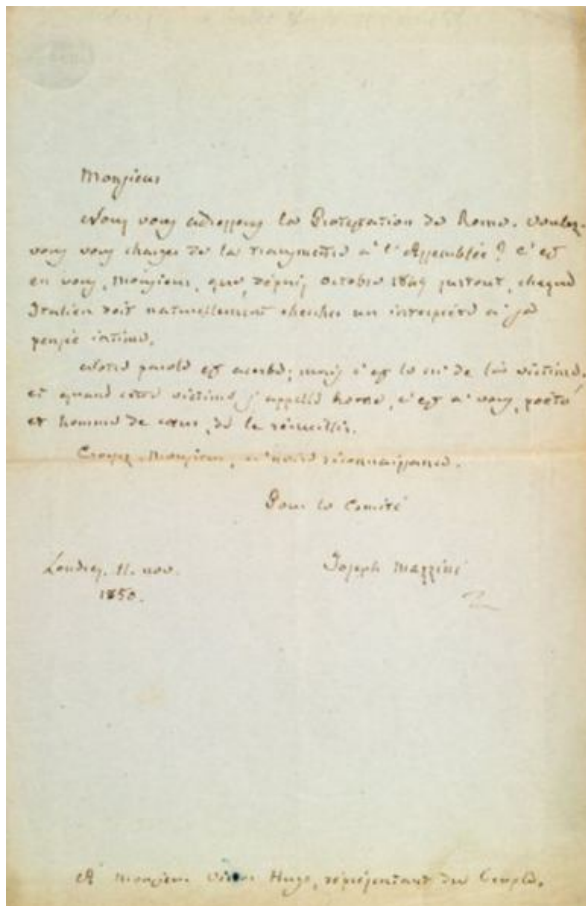 Monsieur
Nous vous adressons la Protestation de Rome. Voulez-
vous vous charger de la transmettre à l'Assemblée? C'est
en vous, Monsieur, que, depuis octobre 1849 surtout, chaque
Italien doit naturellement chercher un interprète à sa
pensée intime.
Notre parole est acerbe; mais c'est le cri de la victime,
et quand cette victime s'appelle Rome, c'est à vous, poète
et homme de cœur, de le recueillir.
Croyez, Monsieur, à notre reconnaissance.
Pour le Comité
Joseph Mazzini
Londres, 11. nov.
1850.
A Monsieur Victor Hugo, représentant du Peuple.